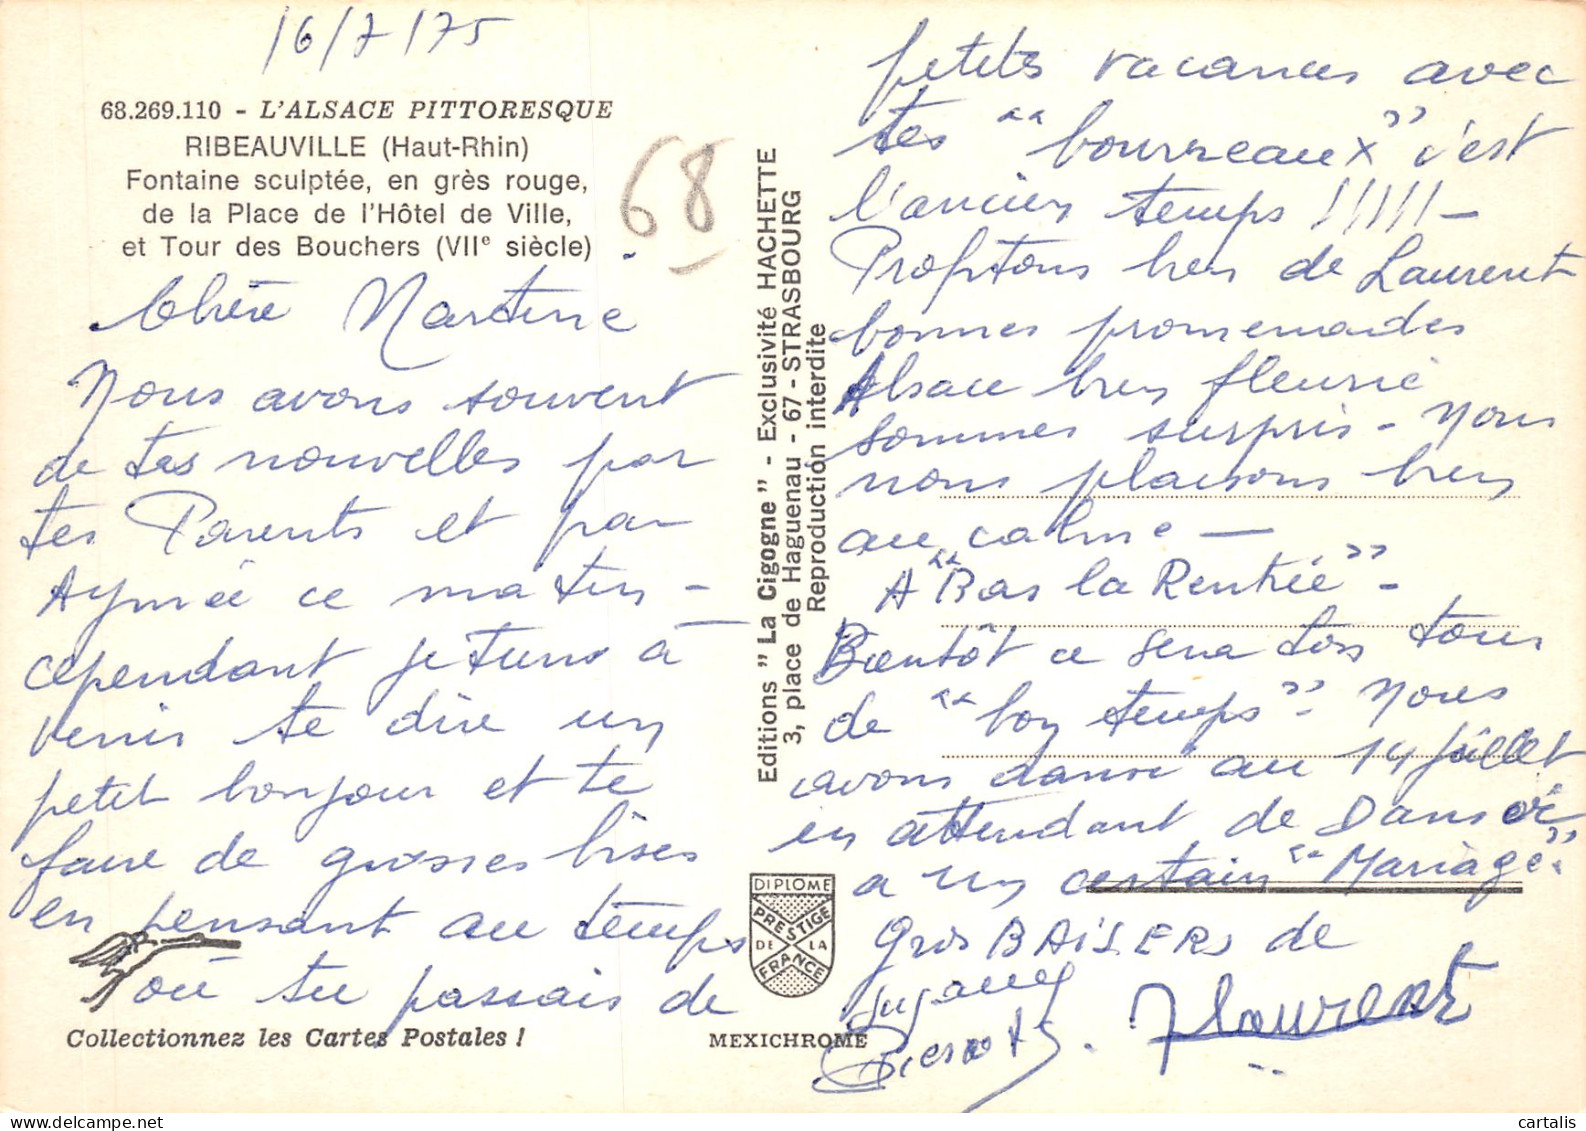 16/7/75
68.269.110 - L'ALSACE PITTORESQUE
RIBEAUVILLE (Haut-Rhin)
Fontaine sculptée, en grès rouge,
de la Place de l'Hôtel de Ville,
et Tour des Bouchers (VIIe siècle)
68
Chère Martine
Nous avons souvent
de tes nouvelles par
tes Parents et par
Aymée ce matin -
cependant je tiens à
venir te dire un
petit bonjour et te
faire de grosses bises
en pensant au temps
où tu passais de
Collectionnez les Cartes Postales !
Editions "La Cigogne" - Exclusivité HACHETTE
3, place de Haguenau - 67 - STRASBOURG
Reproduction interdite
DIPLOME
PRESTIGE
DE LA
FRANCE
MEXICHROME
petites vacances avec
tes "bourreaux" c'est
l'ancien temps !!!!! -
Profitons bien de Laurent
bonnes promenades
Alsace bien fleurie
sommes surpris - Nous
nous plaisons bien
au calme -
A "Bas la Rentrée" -
Bientôt ce sera tous
de "bon temps" - Nous
avons dansé au 14 Juillet
en attendant de Danser
a un certain "Mariage"
Gros BAISERS de
Suzanne
Pierrot
Laurent
cartalis